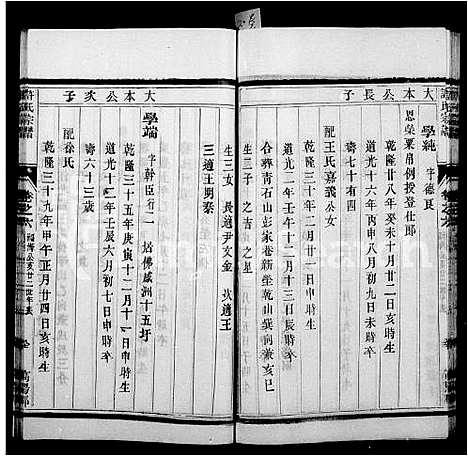 許氏宗譜
大本公長子
學純 字德良
恩榮粟帛例授登仕郎
乾隆廿八年癸未十月廿二日亥時生
道光十六年丙申八月初九日未時卒
壽七十有四
配王氏嘉議公女
乾隆三十年二月初一日申時生
道光二年壬午十二月十三日辰時卒
合葬青石山彭家巷新塋乾山巽向兼亥巳
生三子 之吉 之星
生三女 長適尹文金 次適王
三適王明泰
大本公次子
學端 字幹臣行二 居佛感洲十五圩
乾隆三十五年庚寅十二月十一日申時生
道光十二年壬辰六月初七日申時卒
壽六十三歲
配徐氏
乾隆三十九年甲午正月廿四日亥時生
許氏宗譜
卷之六